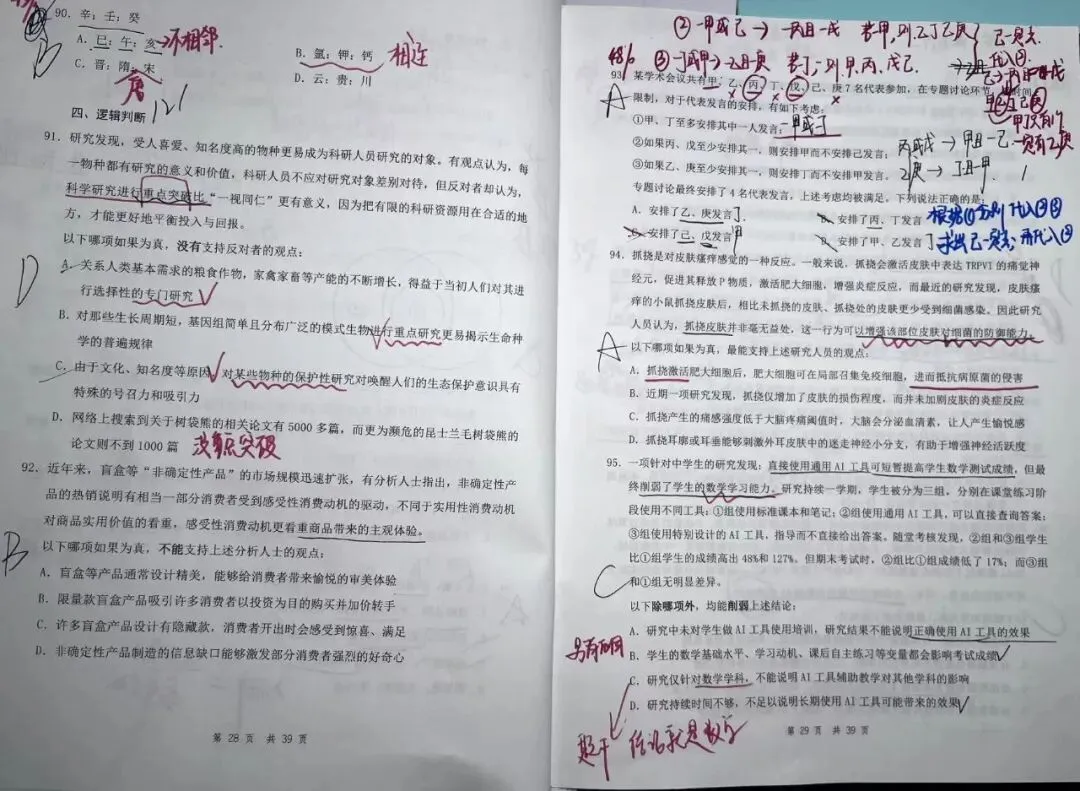 90. 辛：壬：癸
B
A. 巳：午：亥 →不相邻
B. 氩：钾：钙 相连
C. 晋：隋：宋
唐
D. 云：贵：川
四、逻辑判断 121
91. 研究发现，受人喜爱、知名度高的物种更易成为科研人员研究的对象。有观点认为，每
一物种都有研究的意义和价值，科研人员不应对研究对象差别对待，但反对者却认为，
科学研究进行重点突破比“一视同仁”更有意义，因为把有限的科研资源用在合适的地
方，才能更好地平衡投入与回报。
以下哪项如果为真，没有支持反对者的观点：
D
A. 关系人类基本需求的粮食作物，家禽家畜等产能的不断增长，得益于当初人们对其进
行选择性的专门研究
B. 对那些生长周期短，基因组简单且分布广泛的模式生物进行重点研究更易揭示生命科
学的普遍规律
C. 由于文化、知名度等原因，对某些物种的保护性研究对唤醒人们的生态保护意识具有
特殊的号召力和吸引力
D. 网络上搜索到关于树袋熊的相关论文有 5000 多篇，而更为濒危的昆士兰毛树袋熊的
论文则不到 1000 篇 没重点突破
92. 近年来，盲盒等“非确定性产品”的市场规模迅速扩张，有分析人士指出，非确定性产
品的热销说明有相当一部分消费者受到感受性消费动机的驱动，不同于实用性消费动机
对商品实用价值的看重，感受性消费动机更看重商品带来的主观体验。
B
以下哪项如果为真，不能支持上述分析人士的观点：
A. 盲盒等产品通常设计精美，能够给消费者带来愉悦的审美体验
B. 限量款盲盒产品吸引许多消费者以投资为目的购买并加价转手
C. 许多盲盒产品设计有隐藏款，消费者开出时会感受到惊喜、满足
D. 非确定性产品制造的信息缺口能够激发部分消费者强烈的好奇心
第 28 页 共 39 页
48%
93. 某学术会议共有甲、乙、丙、丁、戊、己、庚 7 名代表参加，在专题讨论环节，
A
限制，对于代表发言的安排，有如下考虑：
①甲、丁至多安排其中一人发言； 一甲或丁
②如果丙、戊至少安排其一，则安排甲而不安排己发言； 丙或戊 → 甲且一己
③如果乙、庚至少安排其一，则安排丁而不安排甲发言。
专题讨论最终安排了 4 名代表发言，上述考虑均被满足，下列说法正确的是：
A. 安排了乙、庚发言
B. 安排了丙、丁发言
C. 安排了己、戊发言
D. 安排了甲、乙发言
94. 抓挠是对皮肤瘙痒感觉的一种反应。一般来说，抓挠会激活皮肤中表达 TRPV1 的痛觉神
经元，促进其释放 P 物质，激活肥大细胞，增强炎症反应，而最近的研究发现，皮肤瘙
痒的小鼠抓挠皮肤后，相比未抓挠的皮肤、抓挠处的皮肤更少受到细菌感染。因此研究
人员认为，抓挠皮肤并非毫无益处，这一行为可以增强该部位皮肤对细菌的防御能力。
A
以下哪项如果为真，最能支持上述研究人员的观点：
A. 抓挠激活肥大细胞后，肥大细胞可在局部召集免疫细胞，进而抵抗病原菌的侵害
B. 近期一项研究发现，抓挠仅增加了皮肤的损伤程度，而并未加剧皮肤的炎症反应
C. 抓挠产生的痛感强度低于大脑疼痛阈值时，大脑会分泌血清素，让人产生愉悦感
D. 抓挠耳廓或耳垂能够刺激外耳皮肤中的迷走神经小分支，有助于增强神经活跃度
95. 一项针对中学生的研究发现：直接使用通用 AI 工具可短暂提高学生数学测试成绩，但最
终削弱了学生的数学学习能力。研究持续一学期，学生被分为三组，分别在课堂练习阶
段使用不同工具：①组使用标准课本和笔记；②组使用通用 AI 工具，可以直接查询答案；
③组使用特别设计的 AI 工具，指导而不直接给出答案。随堂考核发现，②组和③组学生
比①组学生的成绩高出 48%和 127%。但期末考试时，②组比①组成绩低了 17%；而③组
和①组无明显差异。
C
以下除哪项外，均能削弱上述结论：
A. 研究中未对学生做 AI 工具使用培训，研究结果不能说明正确使用 AI 工具的效果
B. 学生的数学基础水平、学习动机、课后自主练习等变量都会影响考试成绩
C. 研究仅针对数学学科，不能说明 AI 工具辅助教学对其他学科的影响
D. 研究持续时间不够，不足以说明长期使用 AI 工具可能带来的效果
题干 结论就是数学
第 29 页 共 39 页